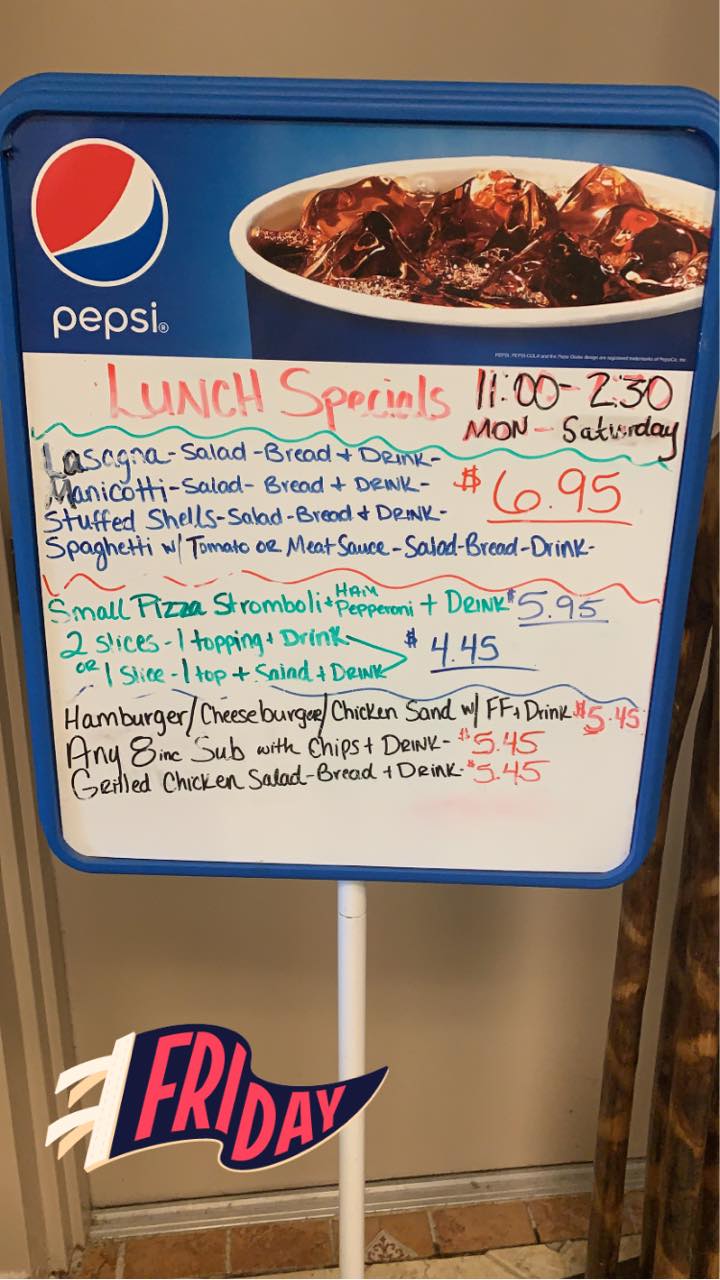 pepsi®
PEPSI, PEPSI-COLA and the Pepsi Globe design are registered trademarks of PepsiCo, Inc.
LUNCH Specials 11:00-2:30
MON - Saturday
Lasagna-Salad-Bread + DRINK-
Manicotti-Salad-Bread + DRINK- $6.95
Stuffed Shells-Salad-Bread + DRINK-
Spaghetti w/Tomato OR Meat Sauce-Salad-Bread-Drink-
Small Pizza Stromboli + HAM Pepperoni + DRINK $5.95
2 slices-1 topping + Drink
OR 1 Slice-1 top + Salad + DRINK $4.45
Hamburger/Cheeseburger/Chicken Sand w/ FF + Drink $5.45
Any 8inc Sub with Chips + DRINK- $5.45
Grilled Chicken Salad-Bread + Drink- $5.45
FRIDAY